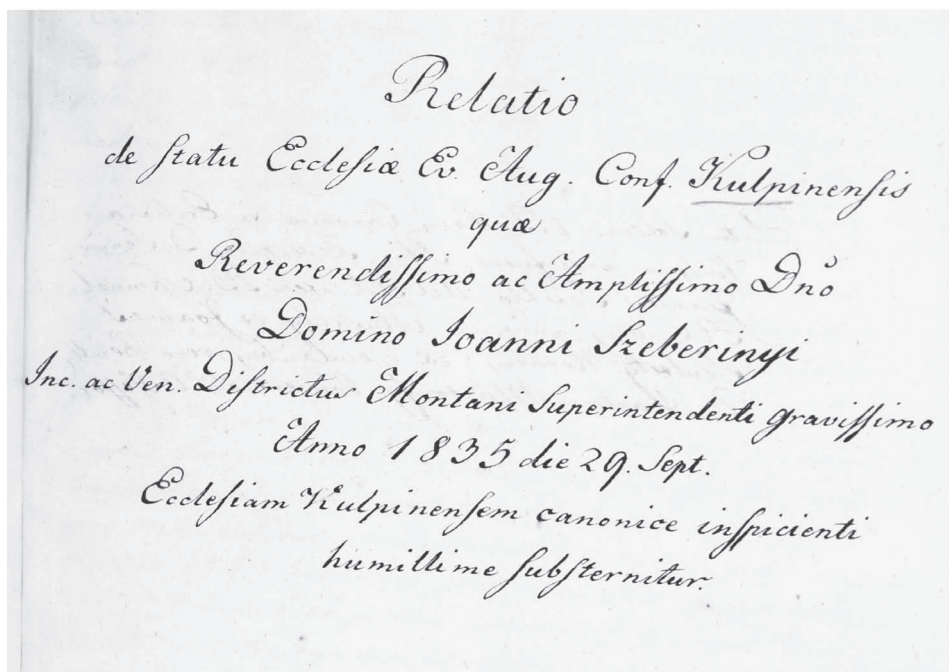 Relatio
de statu Ecclesiæ Ev. Aug. Conf. Kulpinensis
quæ
Reverendissimo ac Amplissimo Dno
Domino Ioanni Szeberinyi
Inc. ac Ven. Districtus Montani Superintendenti gravissimo
Anno 1835 die 29. Sept.
Ecclesiam Kulpinensem canonice inspicienti
humillime substernitur.